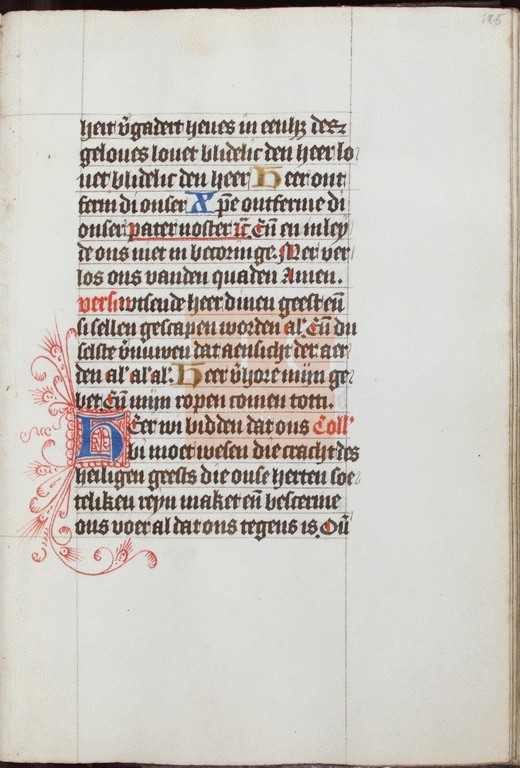 125
heit v̄gadert heues in eenlyc des
geloues louet blidelic den heer lo
uet blidelic den heer Heer ont
ferm di onser Xp̄e ontferme di
onser pater noster ic̄ En̄ en in ley
de ons niet in becoringe. Mer ver
los ons vanden quaden Amen.
vers wtsende heer dinen geest en̄
si sellen gescapen worden al' En̄ du
selste v̄nuwen dat aensicht der aer
den al' al' al'. Heer v̄hore mijn ge
bet En̄ mijn ropen comen toti.
HEer wi bidden dat ons Coll'
bi moet wesen die cracht des
heiligen geests die onse herten soe
teliken reyn maket en̄ bescerme
ons voer al dat ons tegens is. Ou̅